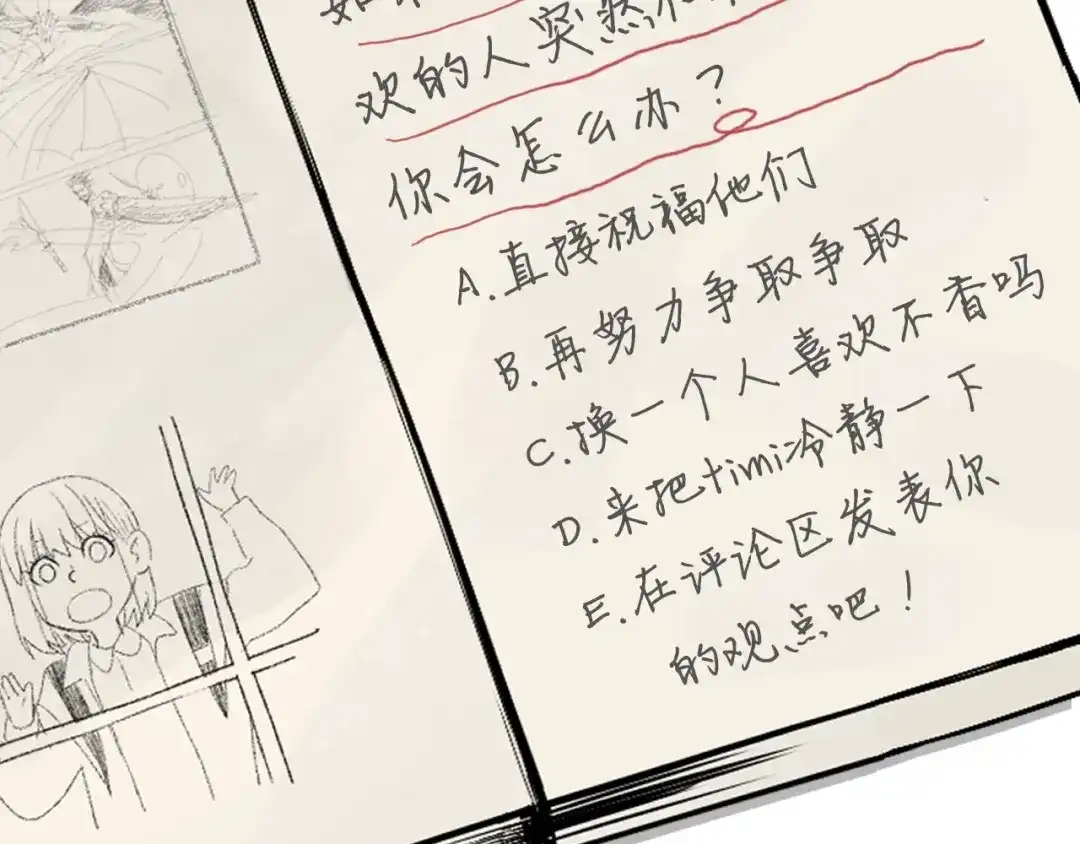 欢的人突然
你会怎么办?
A.直接祝福他们
B.再努力争取争取
C.换一个人喜欢不香吗
D.来把timi冷静一下
E.在评论区发表你
的观点吧!